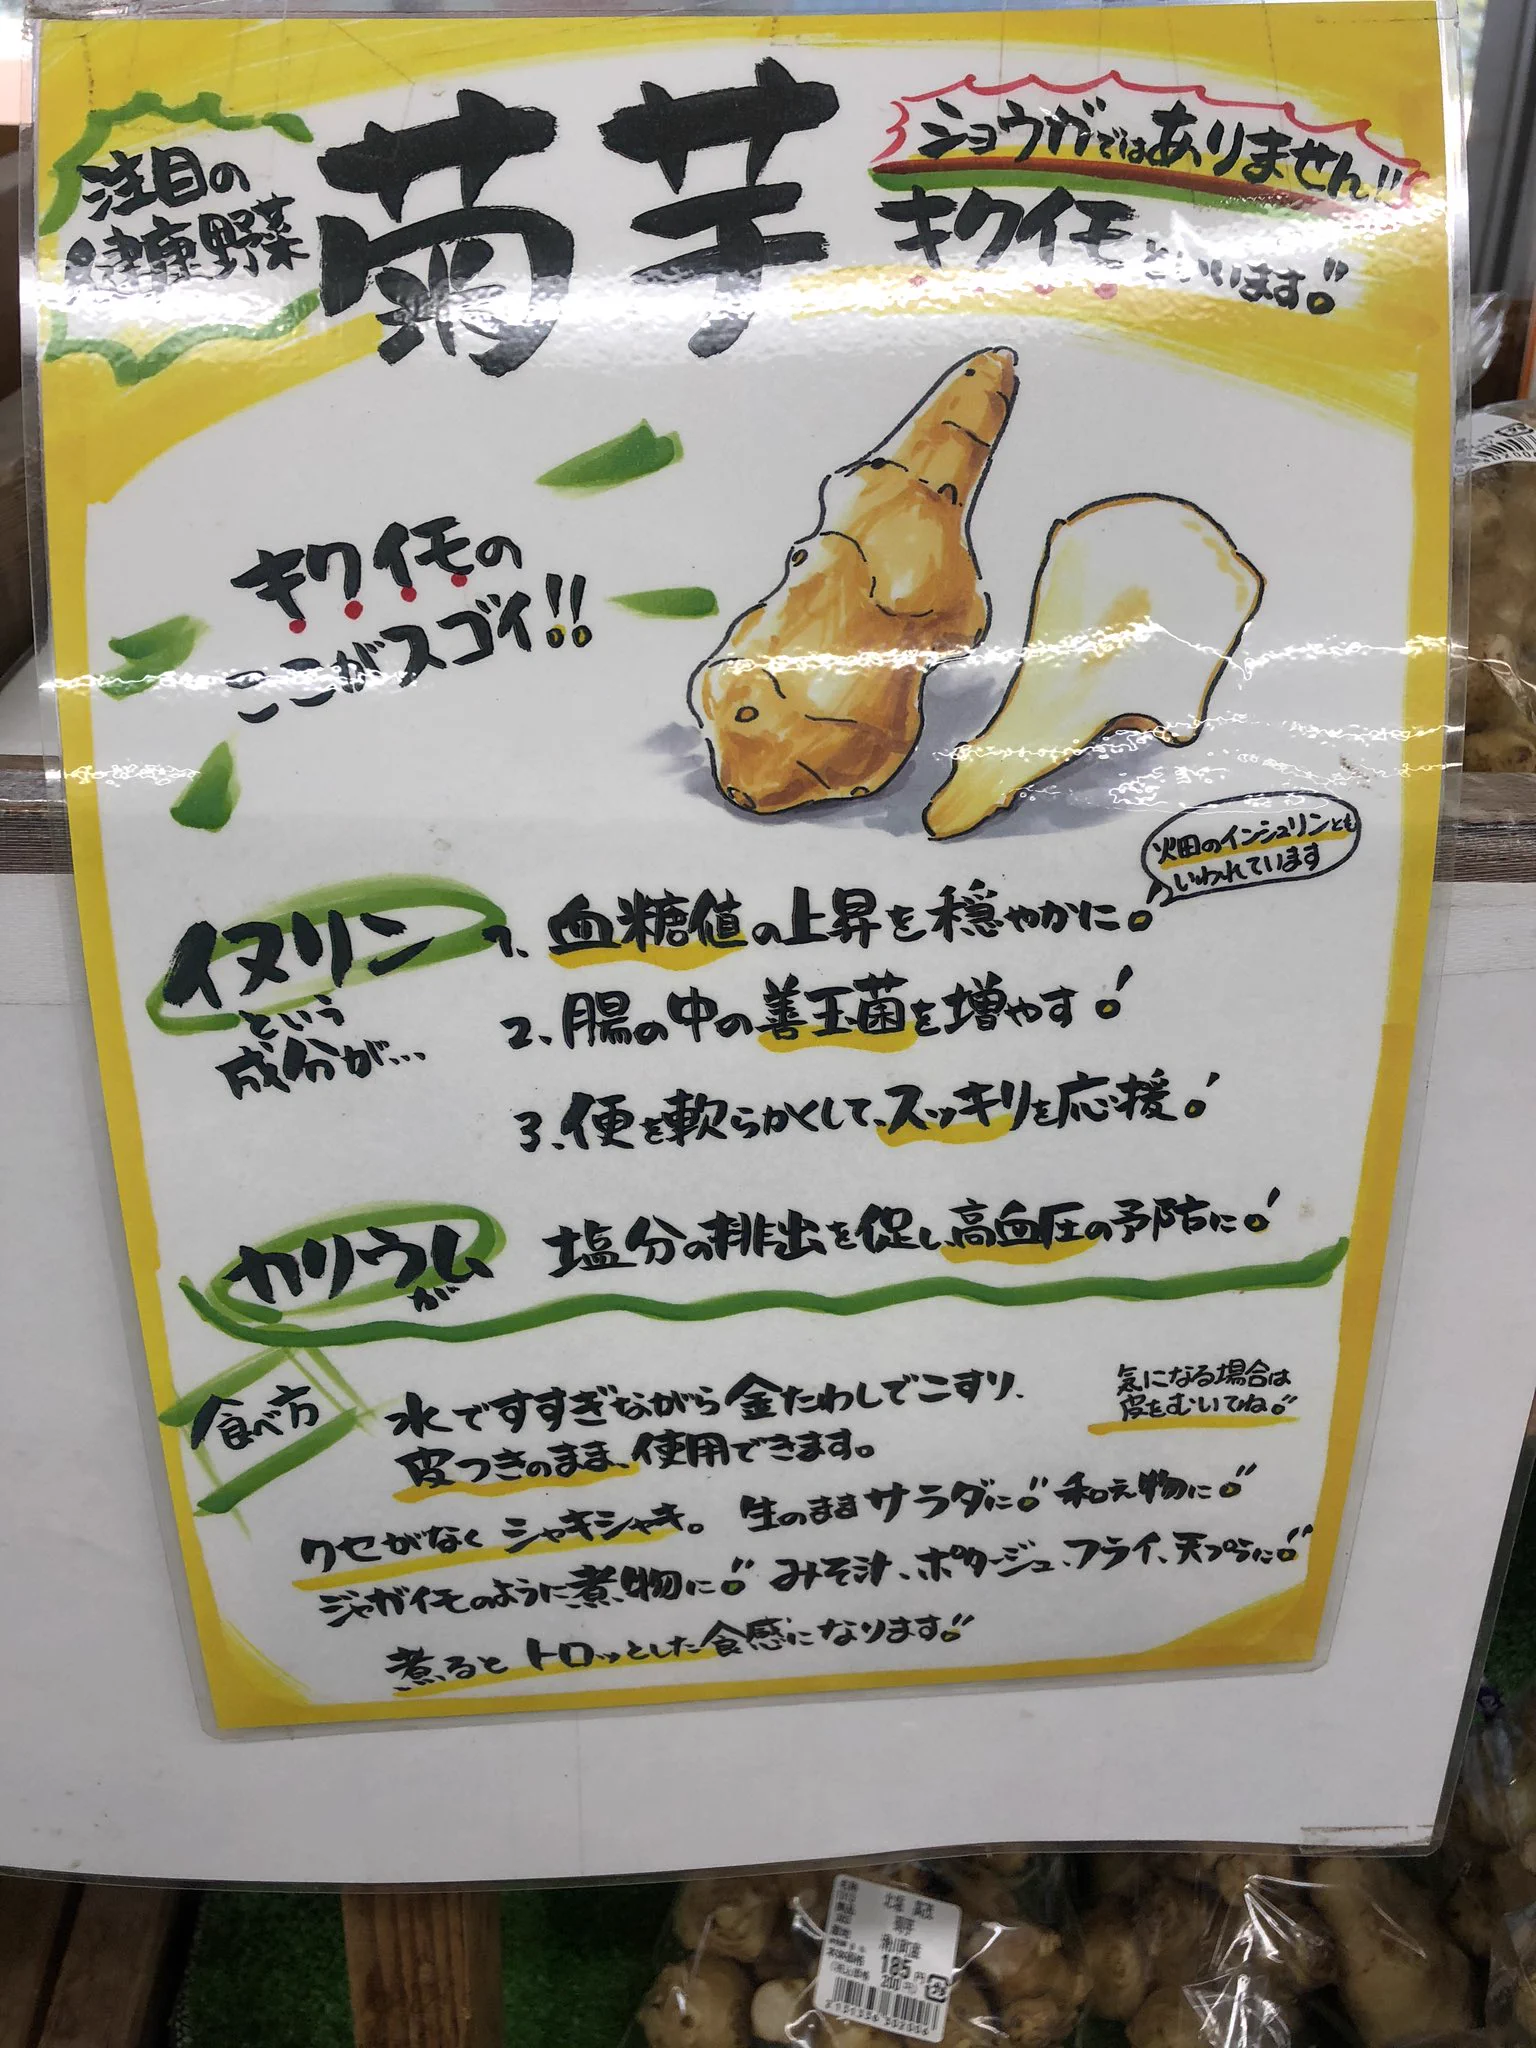 注目の
健康野菜
菊芋
ショウガではありません!!
キクイモといいます!!
キクイモの
ここがスゴイ!!
畑のインシュリンとも
いわれています
イヌリン
という
成分が…
1、血糖値の上昇を穏やかに!
2、腸の中の善玉菌を増やす!
3、便を軟らかくして、スッキリを応援!
カリウムが
塩分の排出を促し、高血圧の予防に!
食べ方
水ですすぎながら金たわしでこすり、
皮つきのまま、使用できます。
気になる場合は
皮をむいてね!!
クセがなくシャキシャキ。生のままサラダに!!和え物に!!
ジャガイモのように煮物に!!みそ汁、ポタージュ、フライ、天プラに!!
煮るとトロッとした食感になります!!
菊芋
185円
200円